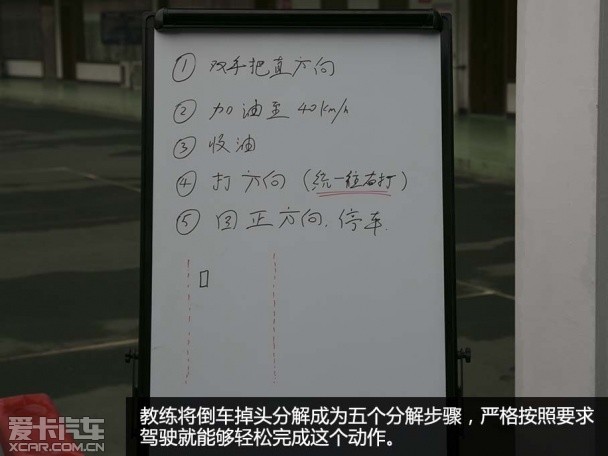 ① 双手把直方向
② 加油至 40km/h
③ 收油
④ 打方向（统一往右打）
⑤ 回正方向.停车.
教练将倒车掉头分解成为五个分解步骤，严格按照要求
驾驶就能够轻松完成这个动作。
爱卡汽车
XCAR.COM.CN